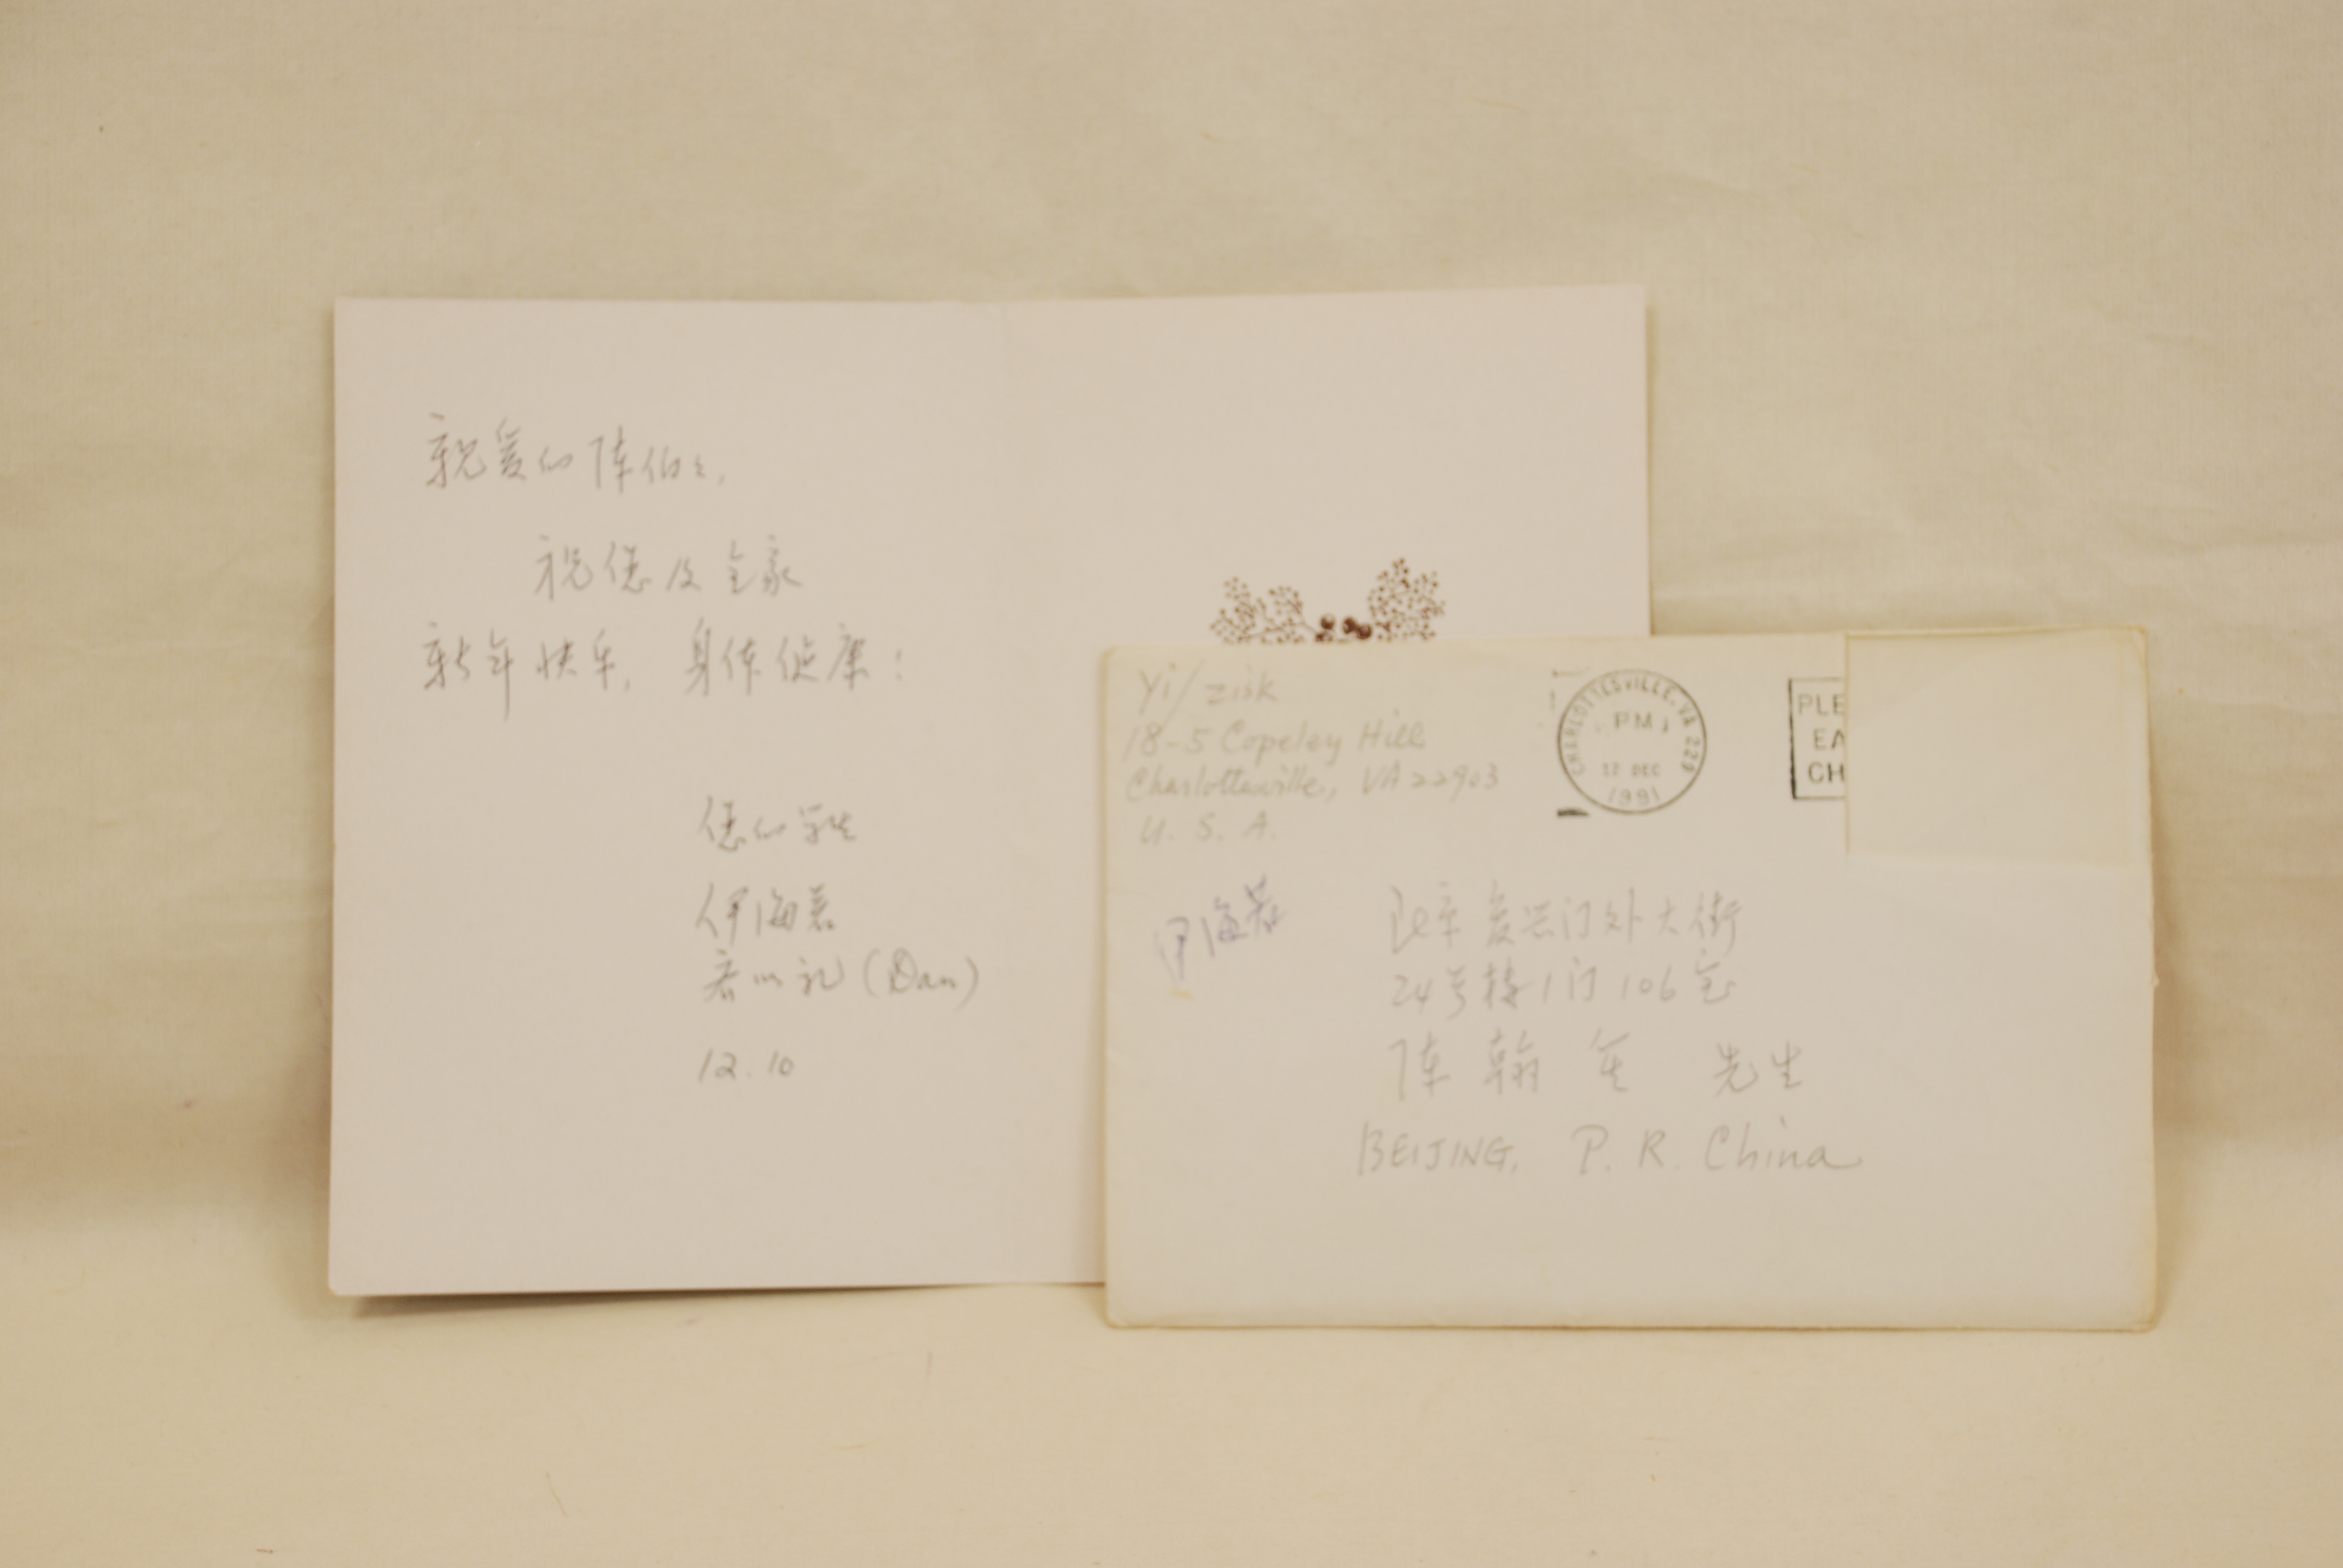 亲爱的陈伯伯,
祝您及全家
新年快乐, 身体健康!
您的学生
伊海若
(Dan)
12.10
Yi/Zisk
18-5 Copeley Hill
Charlottesville, VA 22903
U. S. A.
CHARLOTTESVILLE, VA 229
PM
12 DEC
1991
PLE
EA
CH
伊海若
北京复兴门外大街
24号楼1门106室
陈翰笙 先生
BEIJING, P. R. China